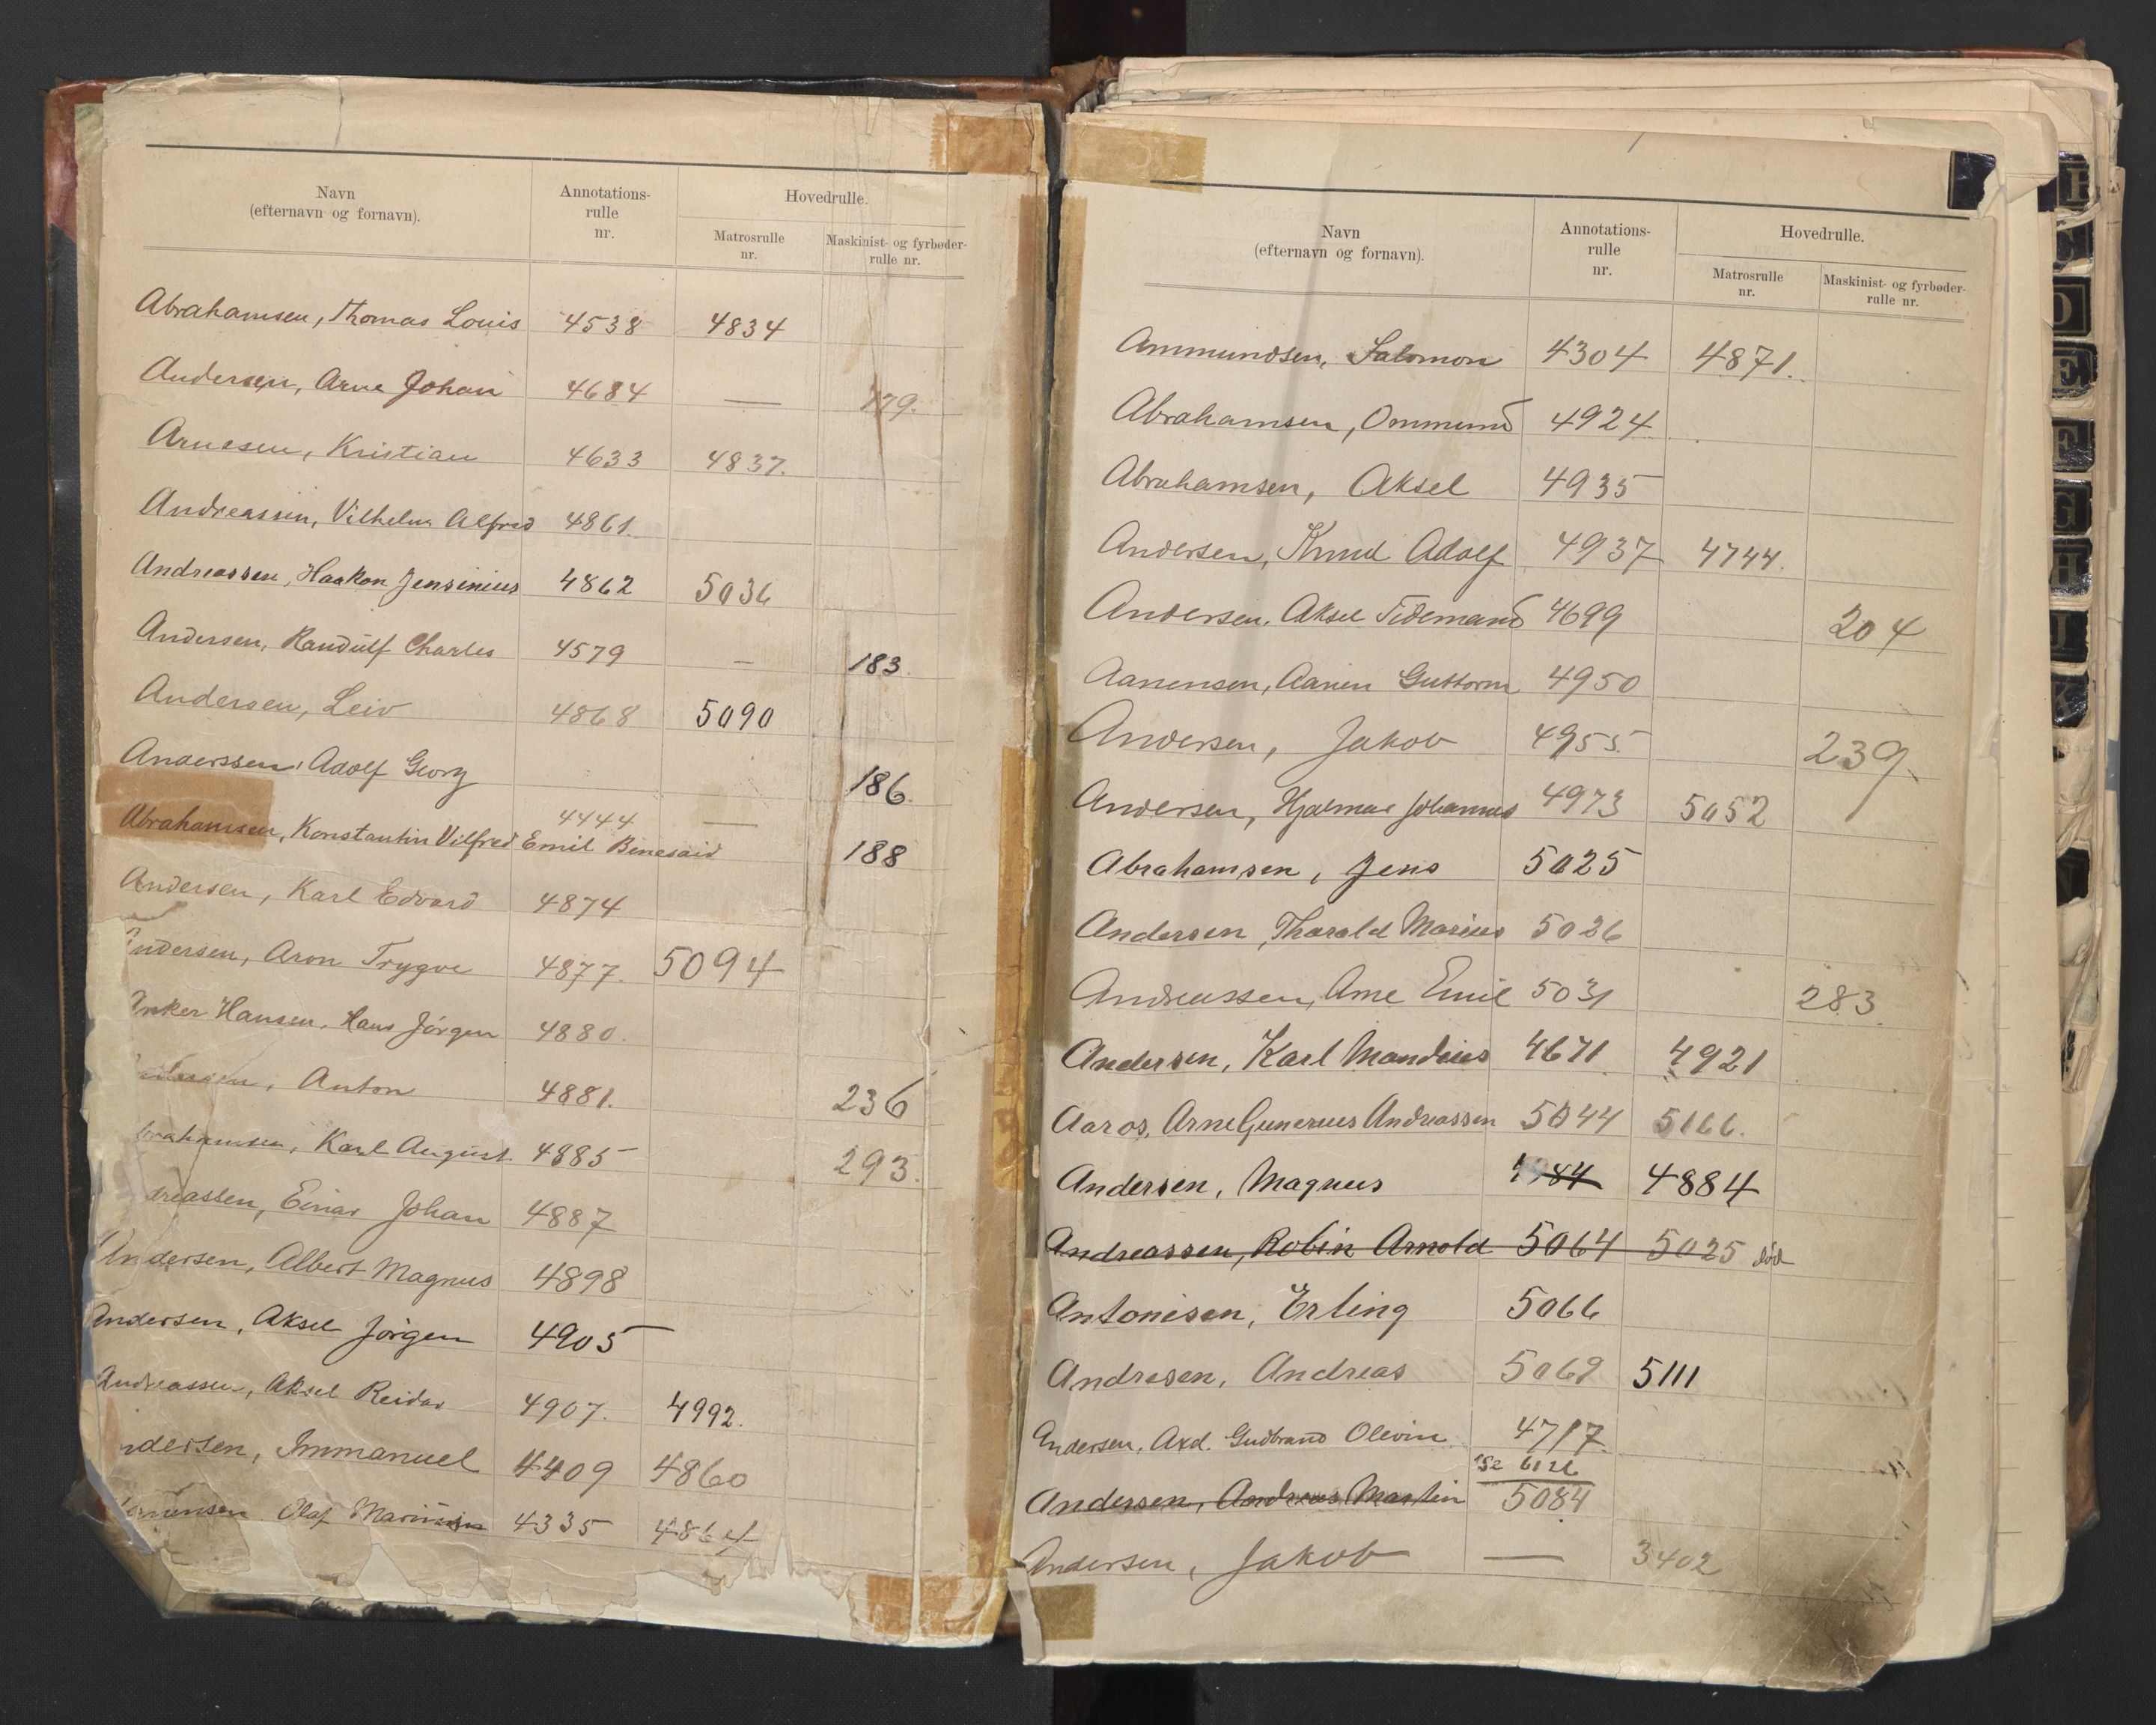 Navn
(efternavn og fornavn).
Annotations-
rulle
nr.
Hovedrulle.
Matrosrulle
nr.
Maskinist- og fyrbøder-
rulle nr.
Abrahamsen, Thomas Louis 4538 4834
Andersen, Arne Johan 4684 — 179.
Arnesen, Kristian 4633 4837.
Andreassen, Vilhelm Alfred 4861.
Andreassen, Haakon Jensinius 4862 5036
Andersen, Randulf Charles 4579 — 183.
Andersen, Leiv 4868 5090
Anderssen, Adolf Georg 186.
4444 —
Abrahamsen, Konstantin Vilfred Emil Benesaid 188
Andersen, Karl Edvard 4874
Andersen, Aron Trygve 4877. 5094
Anker Hansen, Hans Jörgen 4880.
Anton 4881. 236
brahamsen, Karl August. 4885 293.
dreassen, Einar Johan 4887
Andersen, Albert Magnus 4898
Andersen, Aksel Jörgen 4905
Andreassen, Aksel Reidar 4907. 4992.
dersen, Immanuel 4409 4860
Olaf 4335 4864
Navn
(efternavn og fornavn).
Annotations-
rulle
nr.
Hovedrulle.
Matrosrulle
nr.
Maskinist- og fyrbøder-
rulle nr.
Ammundsen, Salomon 4304 4871.
Abrahamsen, Ommund 4924
Abrahamsen, Aksel 4935
Andersen, Knud Adolf 4937 4744.
Andersen, Aksel Tidemand 4699 204
Aanensen, Aanen Guttorm 4950
Andersen, Jakob 4955. 239.
Andersen, Hjalmar Johannes 4973 5052
Abrahamsen, Jens 5025
Andersen, Tharald Marius 5026
Andreassen, Arne Emil 5031 283.
Andersen, Karl Mandius 4671. 4921
Aaros, Arne Gunerius Andreassen 5044 5166.
Andersen, Magnus 4984 4884
Andreassen, Robin Arnold 5064 5025 död
Antonisen, Erling 5066
Andresen, Andreas 5069 5111
Andersen, Axd. Gudbrand Olevin 4717.
se 6126
Andersen, Andreas Martin 5084
Andersen, Jakob — 3402